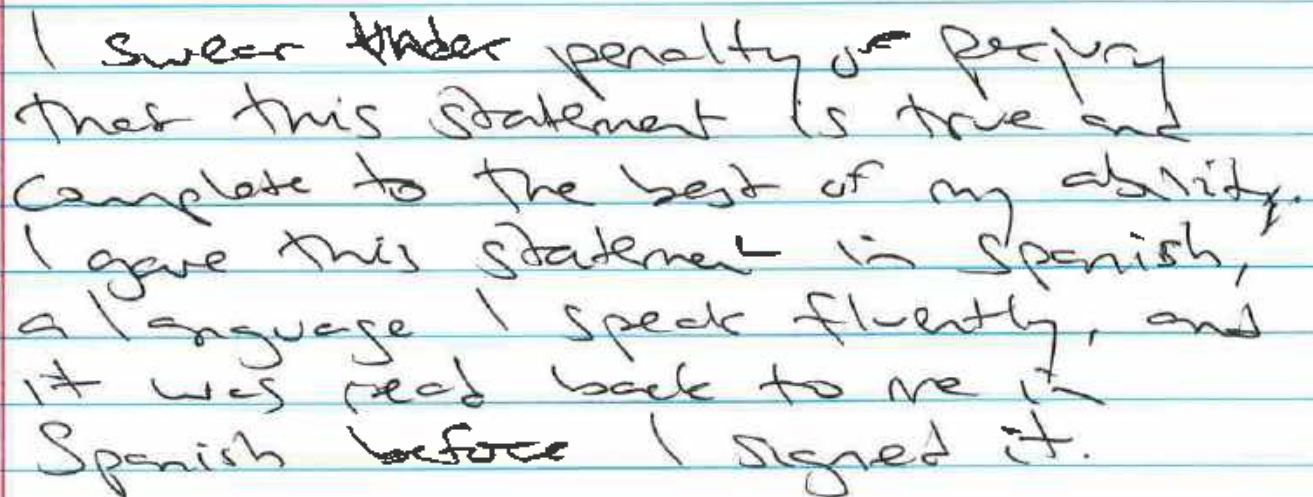 I swear under penalty of perjury
that this statement is true and
complete to the best of my ability.
I gave this statement in Spanish,
a language I speak fluently, and
it was read back to me in
Spanish before I signed it.